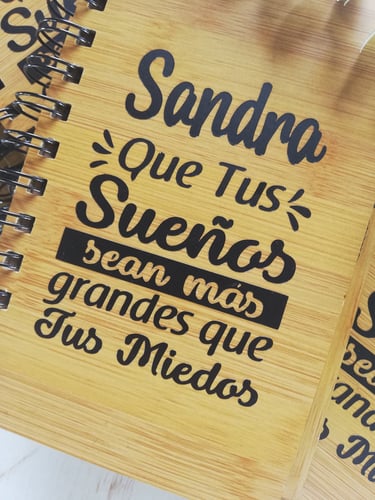 Sandra
Que Tus
Sueños
sean más
grandes que
Tus Miedos